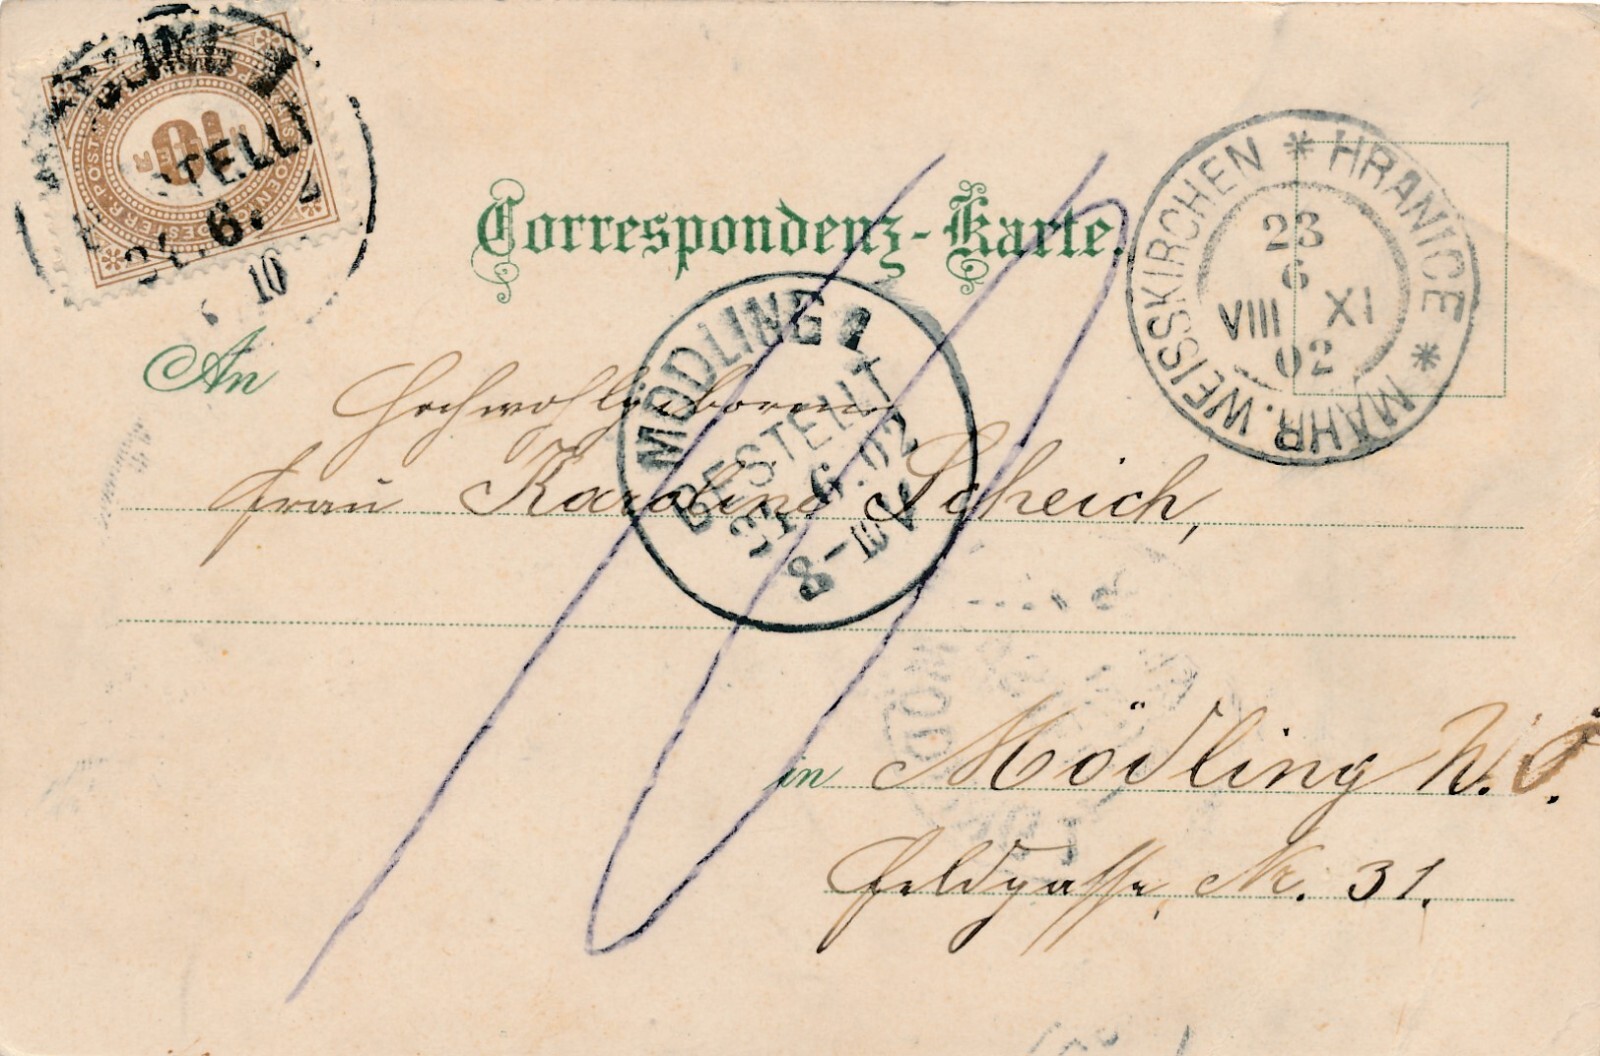 Correspondenz-Karte.
HRANICE * MÄHR. WEISSKIRCHEN *
23
6
VIII XI
02
10
HELLER
MÖDLING 1
BESTELLT
6. 02
8-10V
10
An
Hochwohlgeboren
Frau Karoline Scheich,
in Mödling N. Ö.
Feldgasse, Nr. 31.